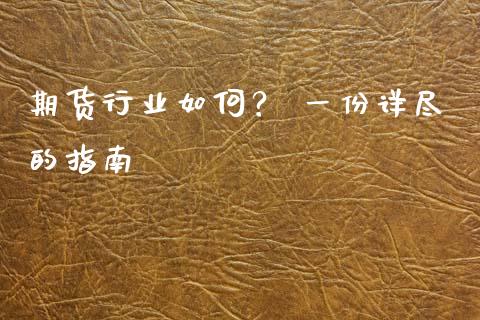 期货行业如何？ 一份详尽
的指南